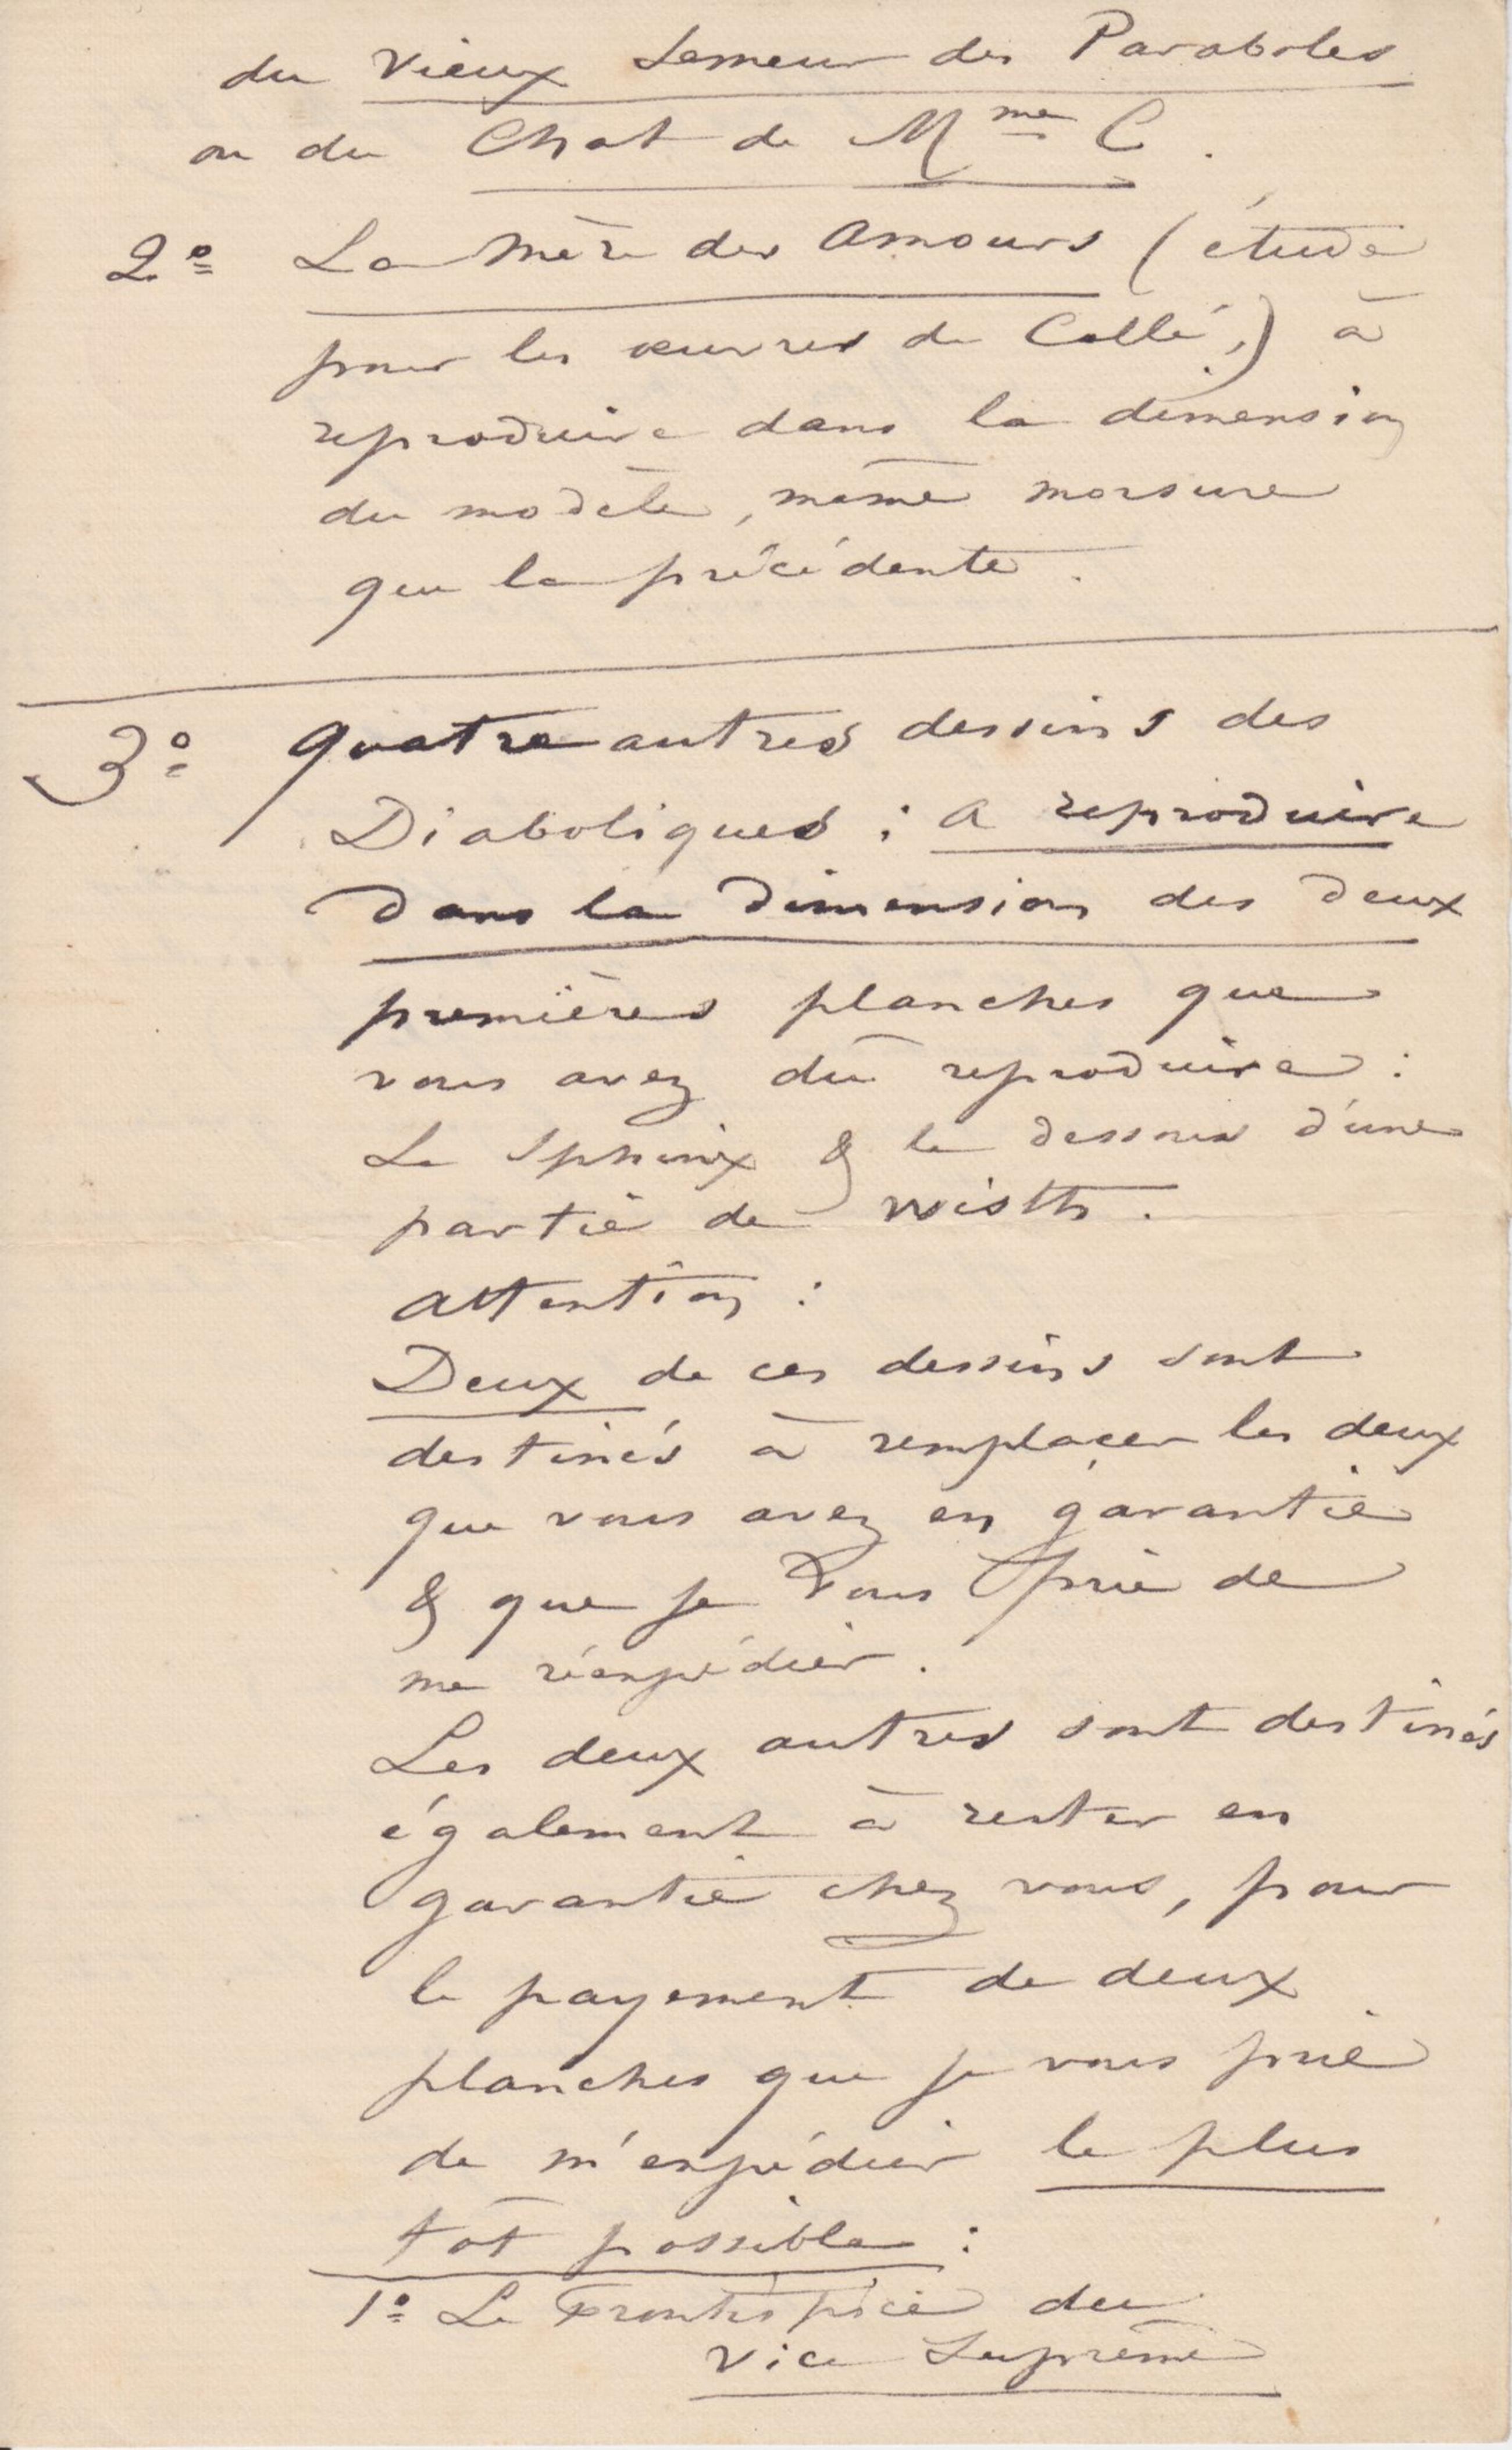 du Vieux Semeur des Paraboles
ou du Chat de Mme C.
2o La Mère des Amours (étude
pour les œuvres de Collé,) à
reproduire dans la dimension
du modèle, même morsure
que la précédente.
3o Quatre autres dessins des
Diaboliques : a reproduire
dans la dimension des deux
premières planches que
vous avez dû reproduire :
Le Sphinx & le dessous d'une
partie de wisth.
attention :
Deux de ces dessins sont
destinés à remplacer les deux
que vous avez en garantie
& que je vous prie de
me réexpédier.
Les deux autres sont destinés
également à rester en
garantie chez vous, pour
le payement de deux
planches que je vous prie
de m'expédier le plus
tôt possible :
1o Le Frontispice du
Vice Suprême